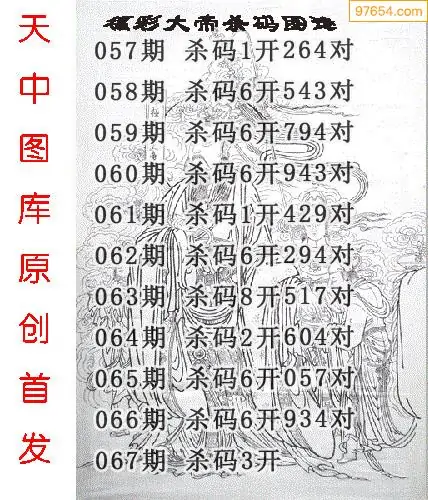 97654.com
福彩大帝杀码图迷
天中图库原创首发
057期 杀码1开264对
058期 杀码6开543对
059期 杀码6开794对
060期 杀码6开943对
061期 杀码1开429对
062期 杀码6开294对
063期 杀码8开517对
064期 杀码2开604对
065期 杀码6开057对
066期 杀码6开934对
067期 杀码3开